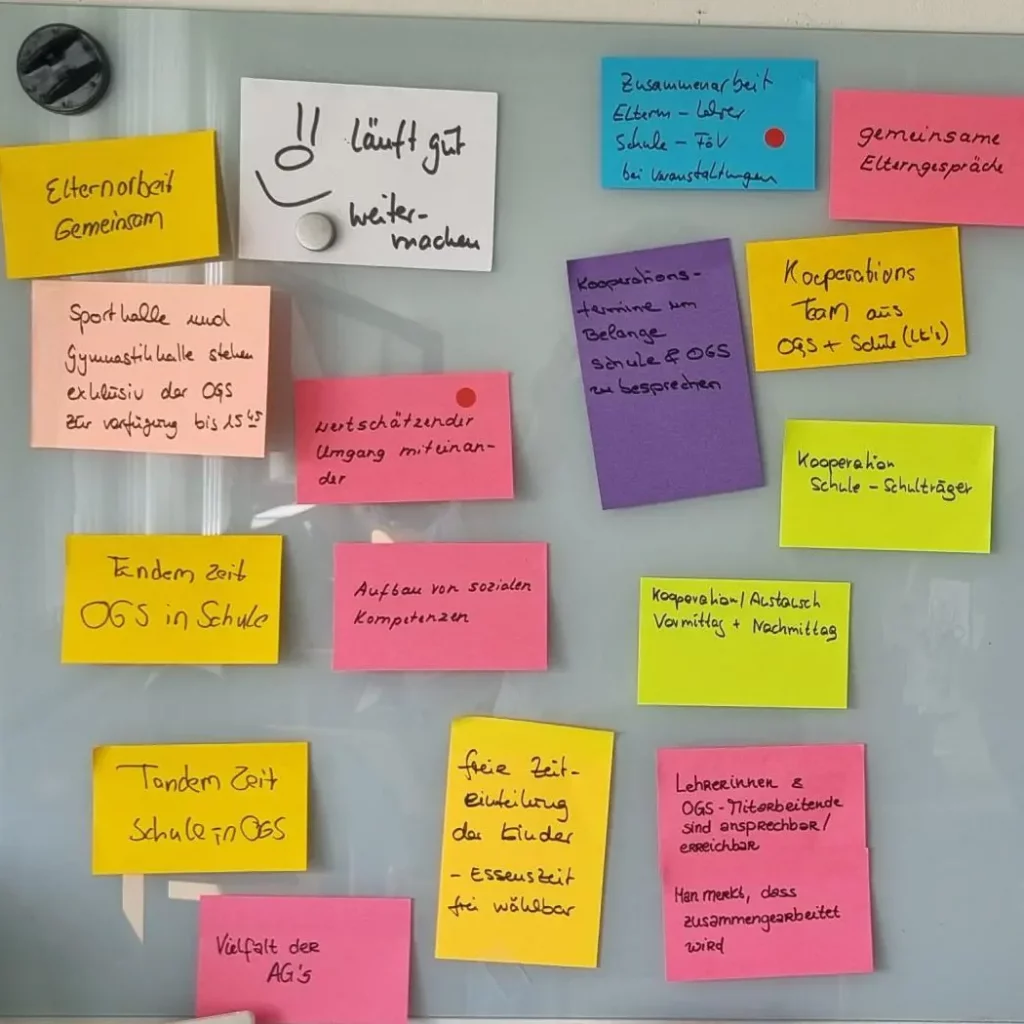 !! läuft gut
weiter-
machen
Zusammenarbeit
Eltern - Lehrer
Schule - FöV
bei Veranstaltungen
gemeinsame
Elterngespräche
Elternarbeit
Gemeinsam
Sporthalle und
Gymnastikhalle stehen
exklusiv der OGS
zur verfügung bis 15 45
wertschätzender
Umgang miteinan-
der
Kooperations-
termine um
Belange
Schule & OGS
zu besprechen
Kooperations
Team aus
OGS + Schule (LK's)
Kooperation
Schule - Schulträger
Tandem Zeit
OGS in Schule
Aufbau von sozialen
Kompetenzen
Kooperation / Austausch
Vormittag + Nachmittag
Tandem Zeit
Schule in OGS
freie Zeit-
einteilung
der Kinder
- Essenszeit
frei wählbar
Lehrerinnen &
OGS-Mitarbeitende
sind ansprechbar/
erreichbar
Man merkt, dass
zusammengearbeitet
wird
Vielfalt der
AG's